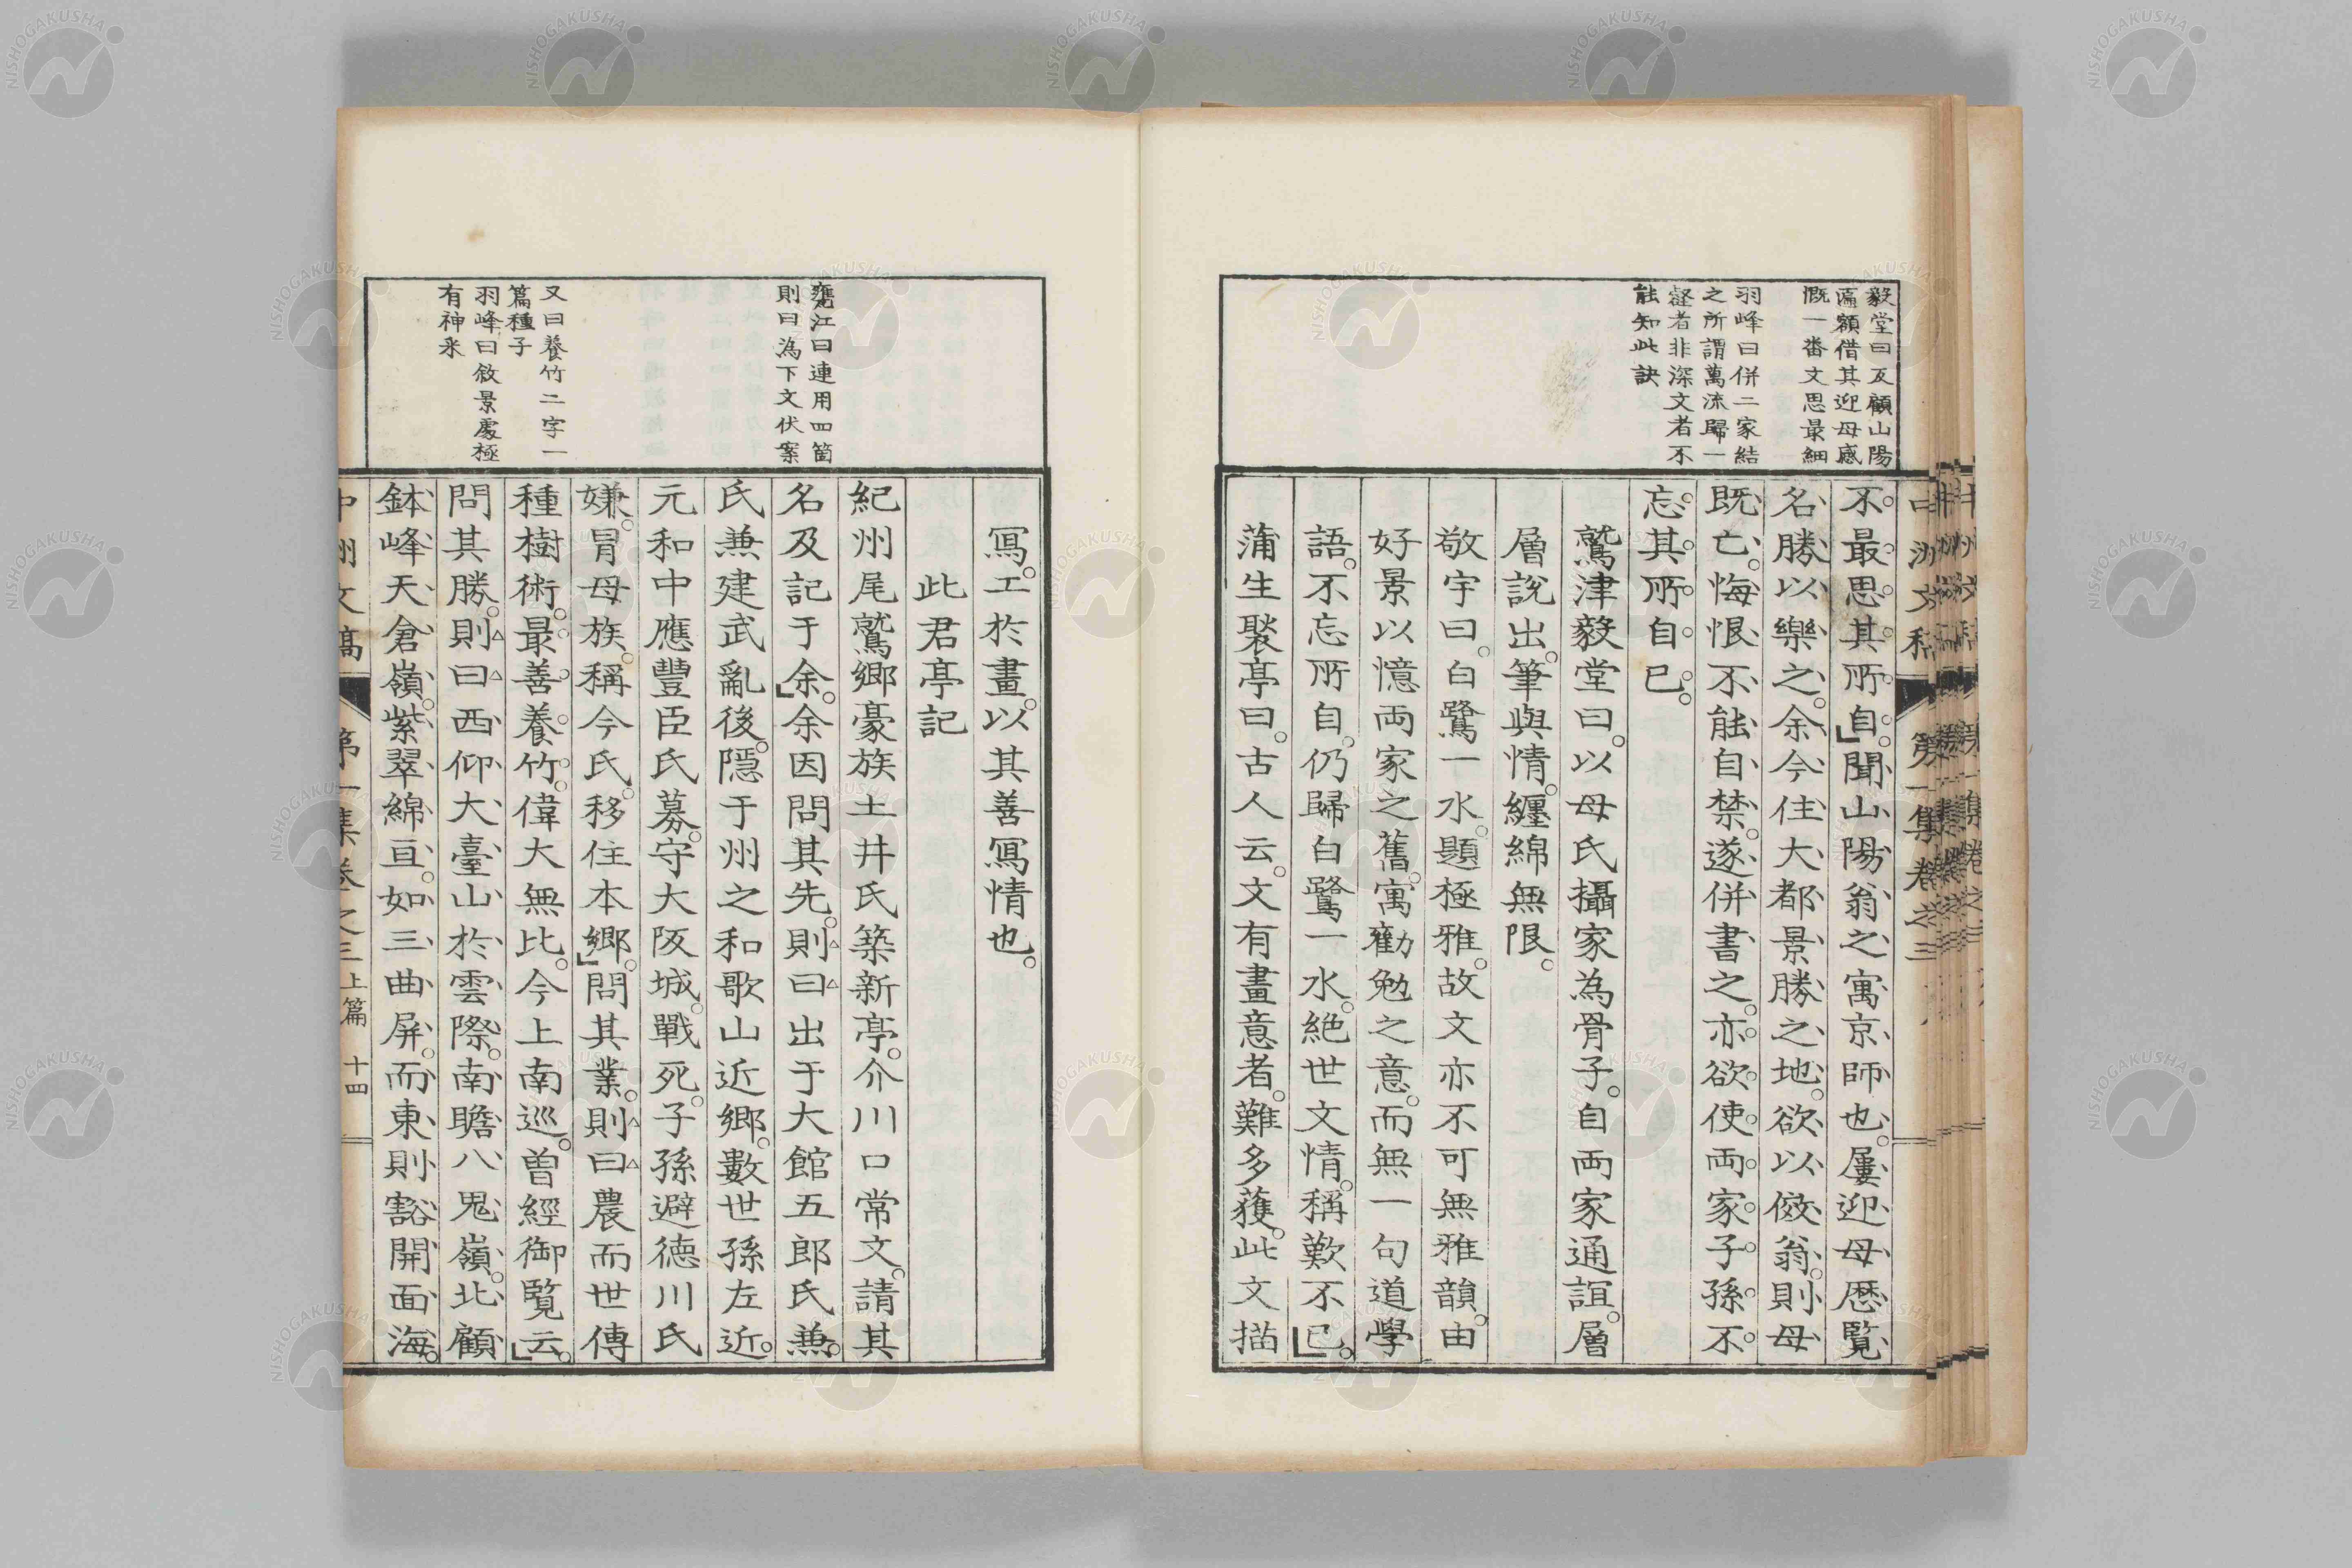 毅堂曰反顧山陽
匾額借其迎母感
慨一番文思最細
羽峰曰併二家結
之所謂萬流歸一
壑者非深文者不
能知此訣
中洲文稿 第一集卷之三
不最思其所自。聞山陽翁之寓京師也。屢迎母歷覧
名勝以樂之。余今住大都景勝之地。欲以傚翁。則母
既亡。悔恨不能自禁。遂併書之。亦欲使両家子孫不
忘其所自已。
鷲津毅堂曰。以母氏攝家為骨子。自両家通誼。層
層説出。筆與情。纏綿無限。
敬宇曰。白鷺一水。題極雅。故文亦不可無雅韻。由
好景以憶両家之舊。寓勸勉之意。而無一句道學
語。不忘所自。仍歸白鷺一水。絶世文情。稱歎不已。
蒲生褧亭曰。古人云。文有畫意者。難多蒦。此文描
甕江曰連用四箇
則曰為下文伏案
又曰養竹二字一
篇種子
羽峰曰敘景處極
有神釆
寫。工於畫。以其善寫情也。
此君亭記
紀州尾鷲鄉豪族土井氏築新亭。介川口常文。請其
名及記于余。余因問其先。則曰出于大館五郎氏兼。
氏兼建武亂後。隱于州之和歌山近鄉。數世孫左近。
元和中應豐臣氏募。守大阪城。戰死。子孫避徳川氏
嫌。冒母族。稱今氏。移住本鄉。問其業。則曰農而世傳
種樹術。最善養竹。偉大無比。今上南巡。曽經御覧云。
問其勝。則曰西仰大臺山於雲際。南瞻八鬼嶺。北顧
鉢峰天倉嶺。紫翠綿亘。如三曲屏。而東則豁開面海。
中洲文稿 第一集卷之三 上篇 十四